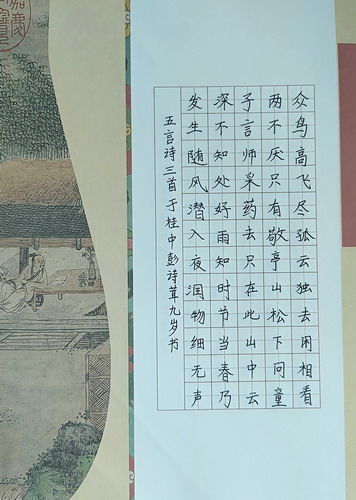 众鸟高飞尽孤云独去闲相看
两不厌只有敬亭山松下问童
子言师采药去只在此山中云
深不知处好雨知时节当春乃
发生随风潜入夜润物细无声
五言诗三首于桂中彭诗茸九岁书